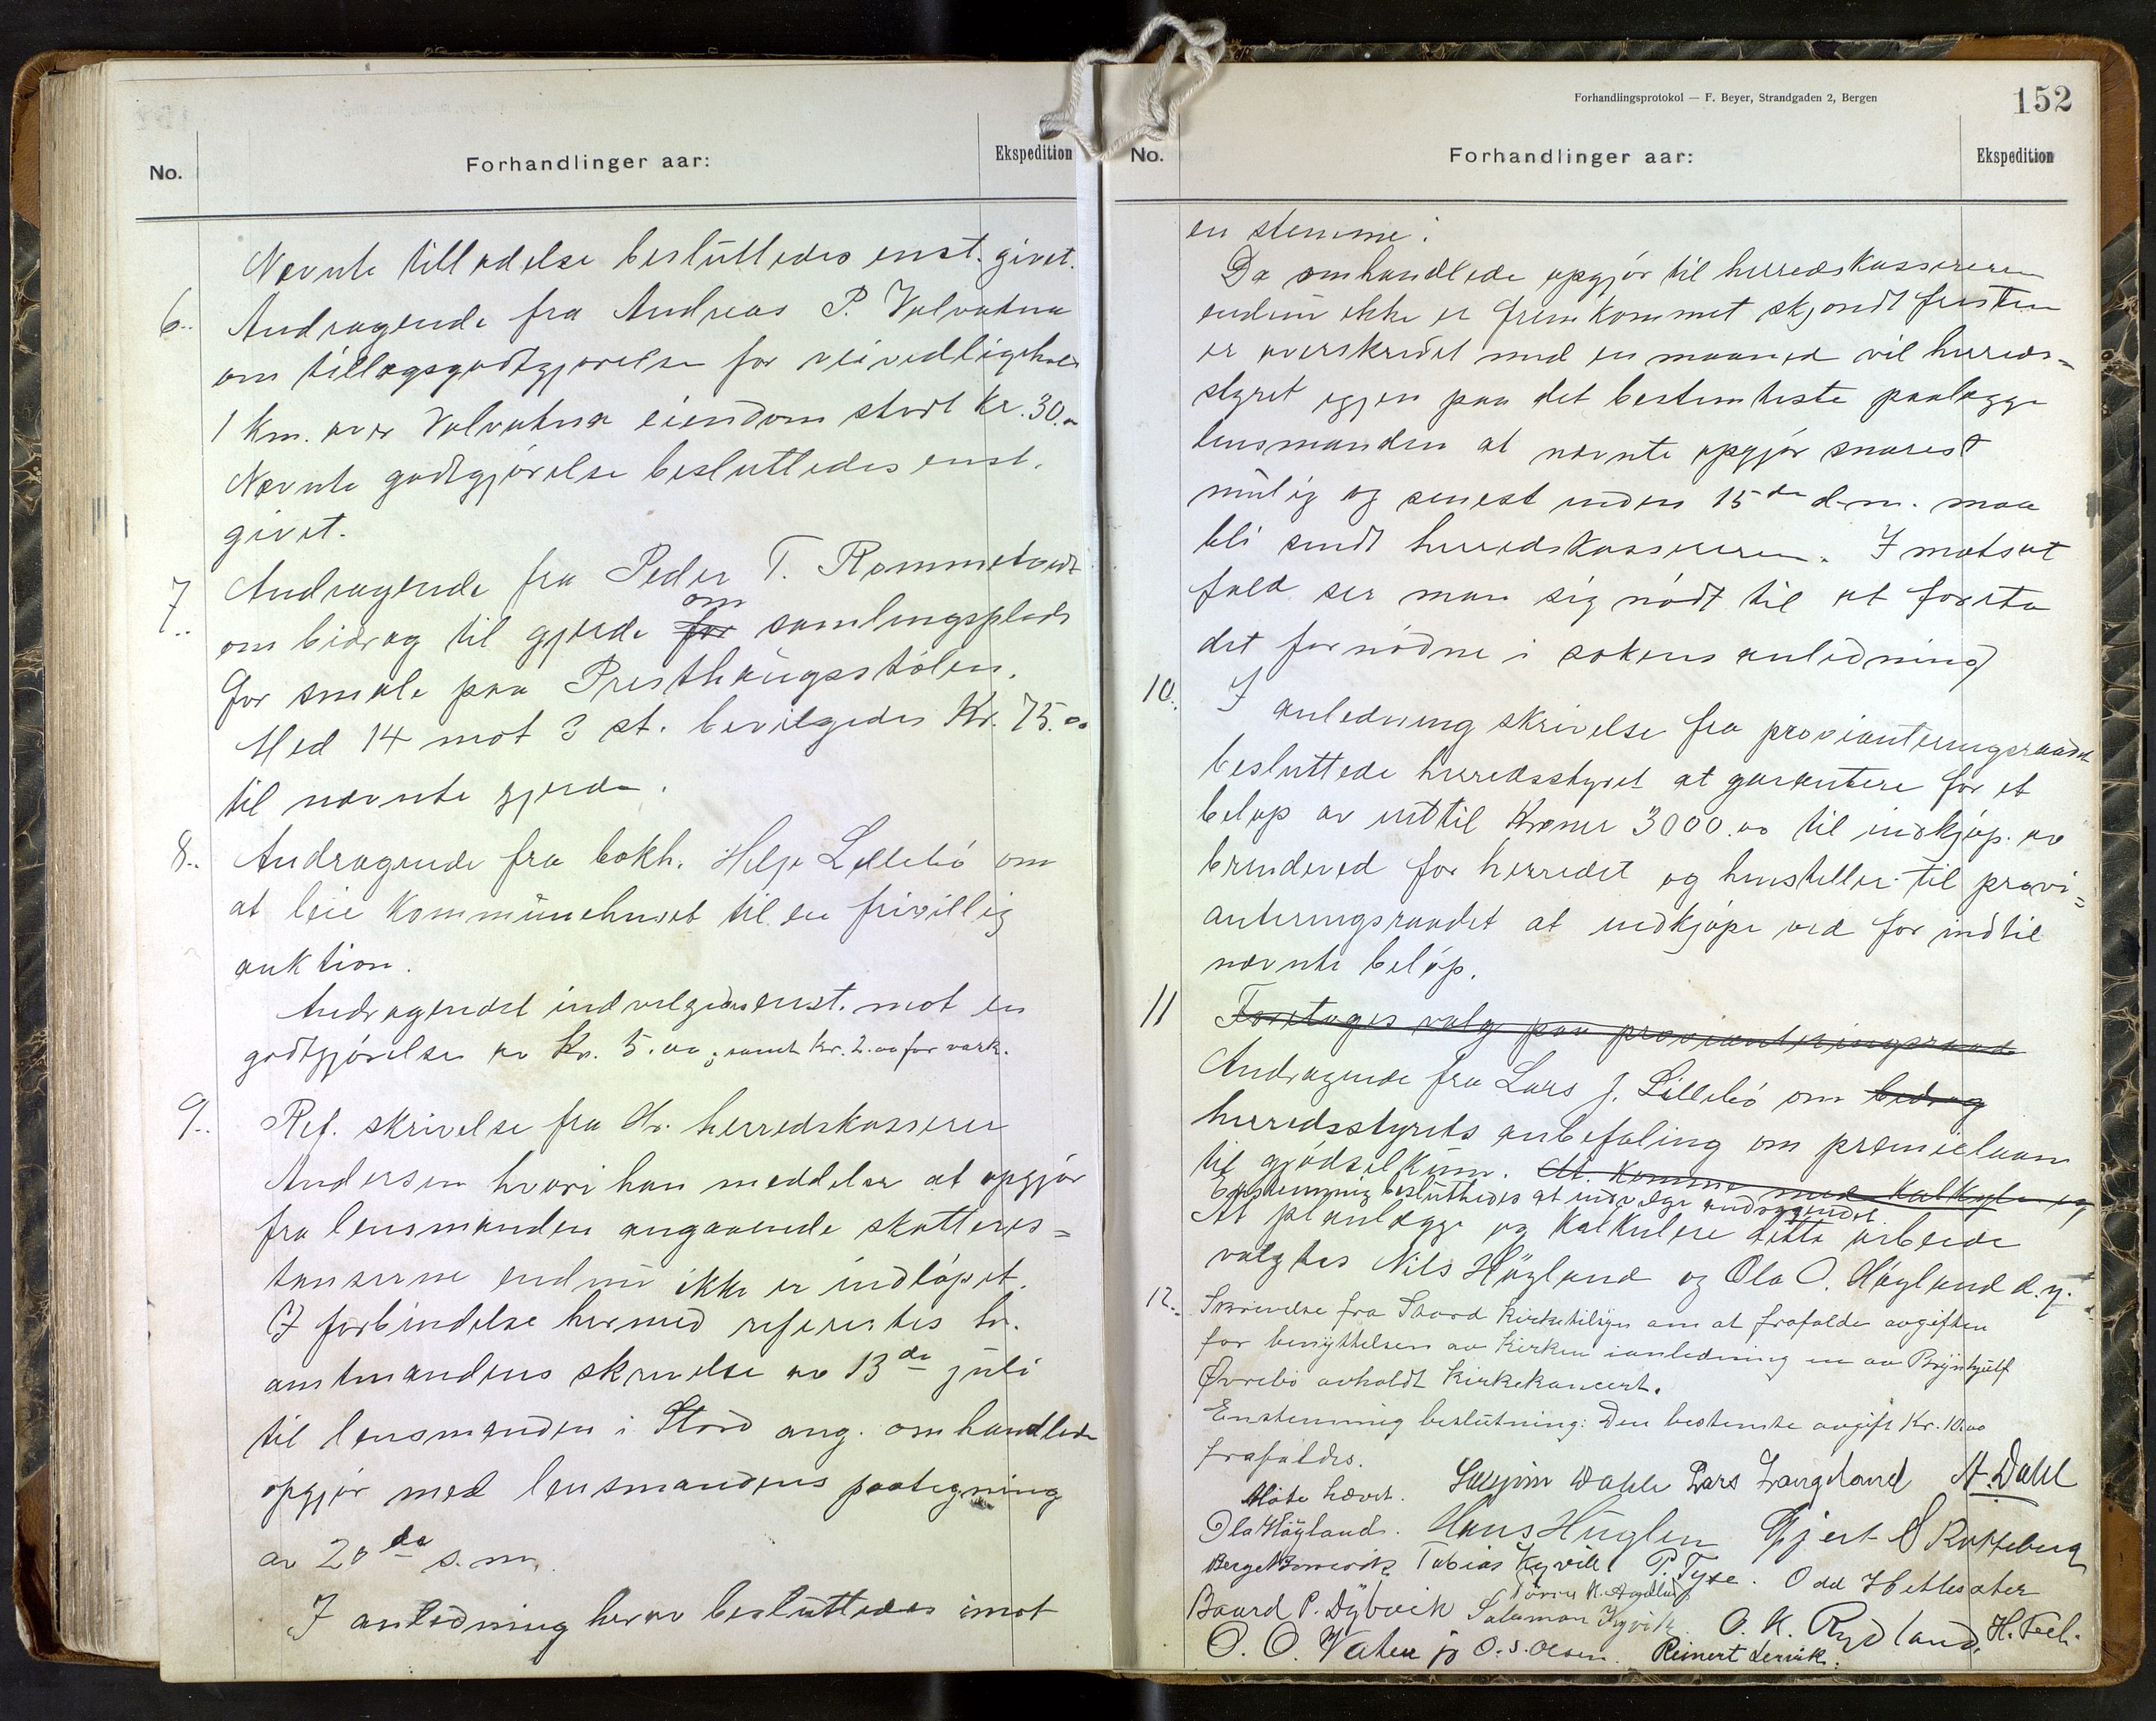 No.
Forhandlinger aar:
Ekspedition
Nævnte tilladelse besluttedes enst. givet.
6.. Andragende fra Andreas P. Valvatna
om tillægsgodtgjørelse for veivedligehold
1 Km. over Valvatna eiendom stort kr. 30.-
Nævnte godtgjørelse besluttedes enst.
givet.
7.. Andragende fra Peder T. Rommetvedt
om bidrag til gjerde for om samlingsplads
for smale paa Presthaugsstölen.
Med 14 mot 3 st. bevilgedes Kr. 75.00
til nævnte gjerde.
8.. Andragende fra bokh. Helje Lillebö om
at leie kommunehuset til en frivillig
auktion.
Andragendet indvilgedes enst. mot en
godtgjörelse av Kr. 5.00, samt kr. 2.00 for vask.
9.. Ref. skrivelse fra Hr. herredskasserer
Andersen hvori han meddeler at opgjör
fra lensmanden angaaende skatteres=
tanserne endnu ikke er indlöpet.
I forbindelse hermed refereres hr.
amtmandens skrivelse av 13de juli
til lensmanden i Stord ang. omhandlede
opgjör med lensmandens paategning
av 20de s.m.
I anledning herav besluttedes imot
Forhandlingsprotokol — F. Beyer, Strandgaden 2, Bergen
152
No.
Forhandlinger aar:
Ekspedition
en stemme:
Da omhandlede opgjör til herredskassereren
endnu ikke er fremkommet skjöndt fristen
er overskredet med en maaned vil herreds-
styret igjen paa det bestemteste paalægge
lensmanden at nævnte opgjör snarest
mulig og senest inden 15de d.m. maa
bli sendt herredskassereren. I motsat
fald ser man sig nödt til at foreta
det fornödne i sakens anledning
10. I anledning skrivelse fra provianteringsraadet
besluttede herredsstyret at garantere for et
belöp av indtil Kroner 3000.00 til indkjöp av
brendeved for herredet og henstiller til provi=
anteringsraadet at indkjöpe ved for indtil
nævnte belöp.
11 Foretages valg paa provianteringsraad
Andragende fra Lars J. Lillebö om bidrag
herredsstyrets anbefaling om præmielaan
til gjödselkum. At komme med kalkyle og
Enstemmig besluttedes at indvilge andragendet.
At planlægge og kalkulere dette arbeide
valgtes Nils Högland og Ola O. Högland d.y.
12.. Skrivelse fra Stord Kirketilsyn om at frafalde avgiften
for benyttelsen av Kirken i anledning en av Brynhjulf
Øvrebö avholdt Kirkekoncert.
Enstemmig beslutning: Den bestemte avgift Kr. 10.00
frafaldes.
Möte hævet. Dahle Lars Langeland A. Dahl
Ola Högland. Hans Huglen Gjert
Tobias Kyvik P. Tyse. Odd Hettesater
Baard P. Dybvik Salamon Kyvik. O. K. Rydland. H.
O. O. Vatne jr O. S. Olsen. Reinert Lervik.